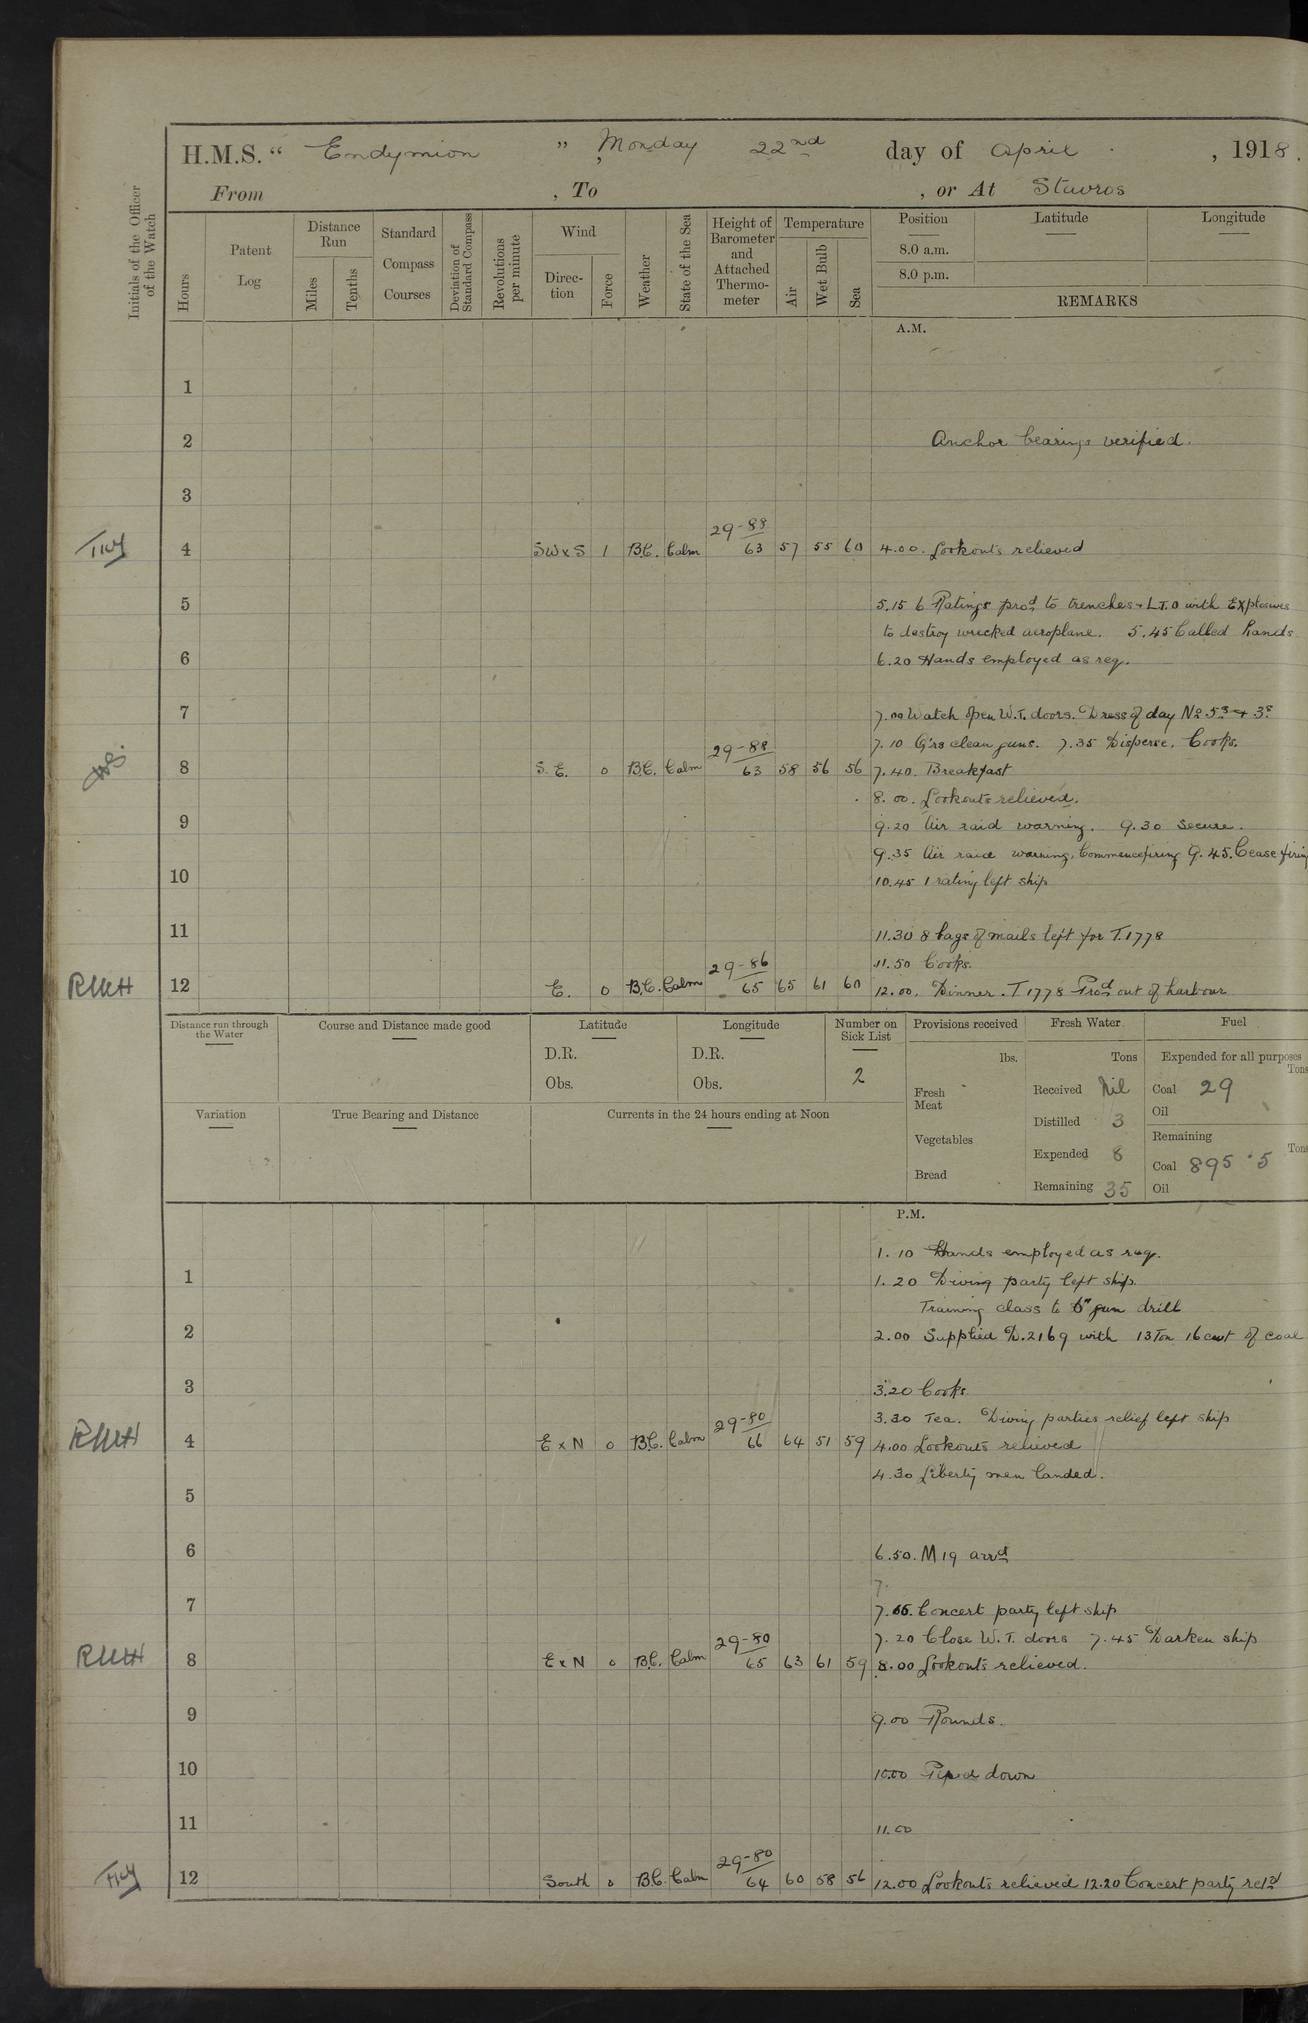 H.M.S. “ Endymion ”, Monday 22nd day of April, 1918.
From , To , or At Stavros
Initials of the Officer of the Watch
Hours
Patent Log
Distance Run
Miles
Tenths
Standard Compass Courses
Deviation of Standard Compass
Revolutions per minute
Wind
Direction
Force
Weather
State of the Sea
Height of Barometer and Attached Thermometer
Temperature
Air
Wet Bulb
Sea
Position
Latitude
Longitude
8.0 a.m.
8.0 p.m.
REMARKS
A.M.
1
2 Anchor bearings verified.
3
29-88
4 SW x S 1 B.C. Calm 63 57 55 60 4.00. Lookouts relieved
5 5.15 6 Ratings prod to trenches + L.T.O with Explosives
to destroy wrecked aeroplane. 5.45 Called hands
6 6.20 Hands employed as req.
7 7.00 Watch open W.T. doors. Dress of day No 5s + 3s
29-88 7.10 G'rs clean guns. 7.35 Disperse. Cooks.
8 S.E. 0 B.C. Calm 63 58 56 56 7.40. Breakfast
8.00. Lookouts relieved.
9 9.20 Air raid warning. 9.30 Secure.
9.35 Air raid warning, Commence firing 9.45. Cease firing
10 10.45 1 rating left ship
11 11.30 8 bags of mails left for T.1778
29-86 11.50 Cooks.
RWH 12 E. 0 B.C. Calm 65 65 61 60 12.00. Dinner. T 1778 Prod out of harbour
Distance run through the Water
Course and Distance made good
Latitude
D.R.
Obs.
Longitude
D.R.
Obs.
Number on Sick List
2
Provisions received
lbs.
Fresh Meat
Vegetables
Bread
Fresh Water
Tons
Received Nil
Distilled 3
Expended 8
Remaining 35
Fuel
Expended for all purposes
Tons
Coal 29
Oil
Remaining
Tons
Coal 895.5
Oil
Variation
True Bearing and Distance
Currents in the 24 hours ending at Noon
P.M.
1.10 Hands employed as req.
1 1.20 Diving party left ship.
Training class to 6" gun drill
2 2.00 Supplied D.2169 with 13 Ton 16 cwt of coal
3 3.20 Cooks
29-80 3.30 Tea. Diving parties relief left ship
RWH 4 E x N 0 B.C. Calm 66 64 51 59 4.00 Lookouts relieved
4.30 Liberty men landed.
5
6 6.50. M 19 arrd
7.
7 Concert party left ship
29-80 7.20 Close W.T. doors 7.45 Darken ship
RWH 8 E x N 0 B.C. Calm 65 63 61 59 8.00 Lookouts relieved.
9 9.00 Rounds.
10 10.00 Piped down
11 11.00
29-80
12 South 0 B.C. Calm 64 60 58 56 12.00 Lookouts relieved 12.20 Concert party retd